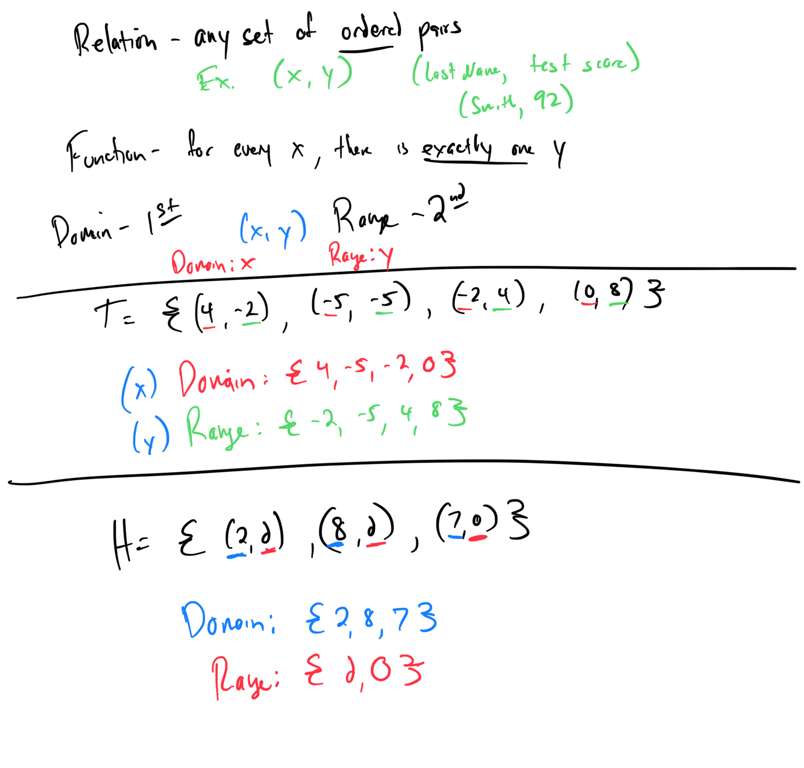 Relation - any set of ordered pairs
Ex. (x, y) (Last Name, test score)
(Smith, 92)
Function - for every x, there is exactly one y
Domain - 1st (x, y) Range - 2nd
Domain: x Range: y
T = { (4, -2), (-5, -5), (-2, 4), (0, 8) }
(x) Domain: { 4, -5, -2, 0 }
(y) Range: { -2, -5, 4, 8 }
H = { (2, ∂), (8, ∂), (7, 0) }
Domain: { 2, 8, 7 }
Range: { ∂, 0 }